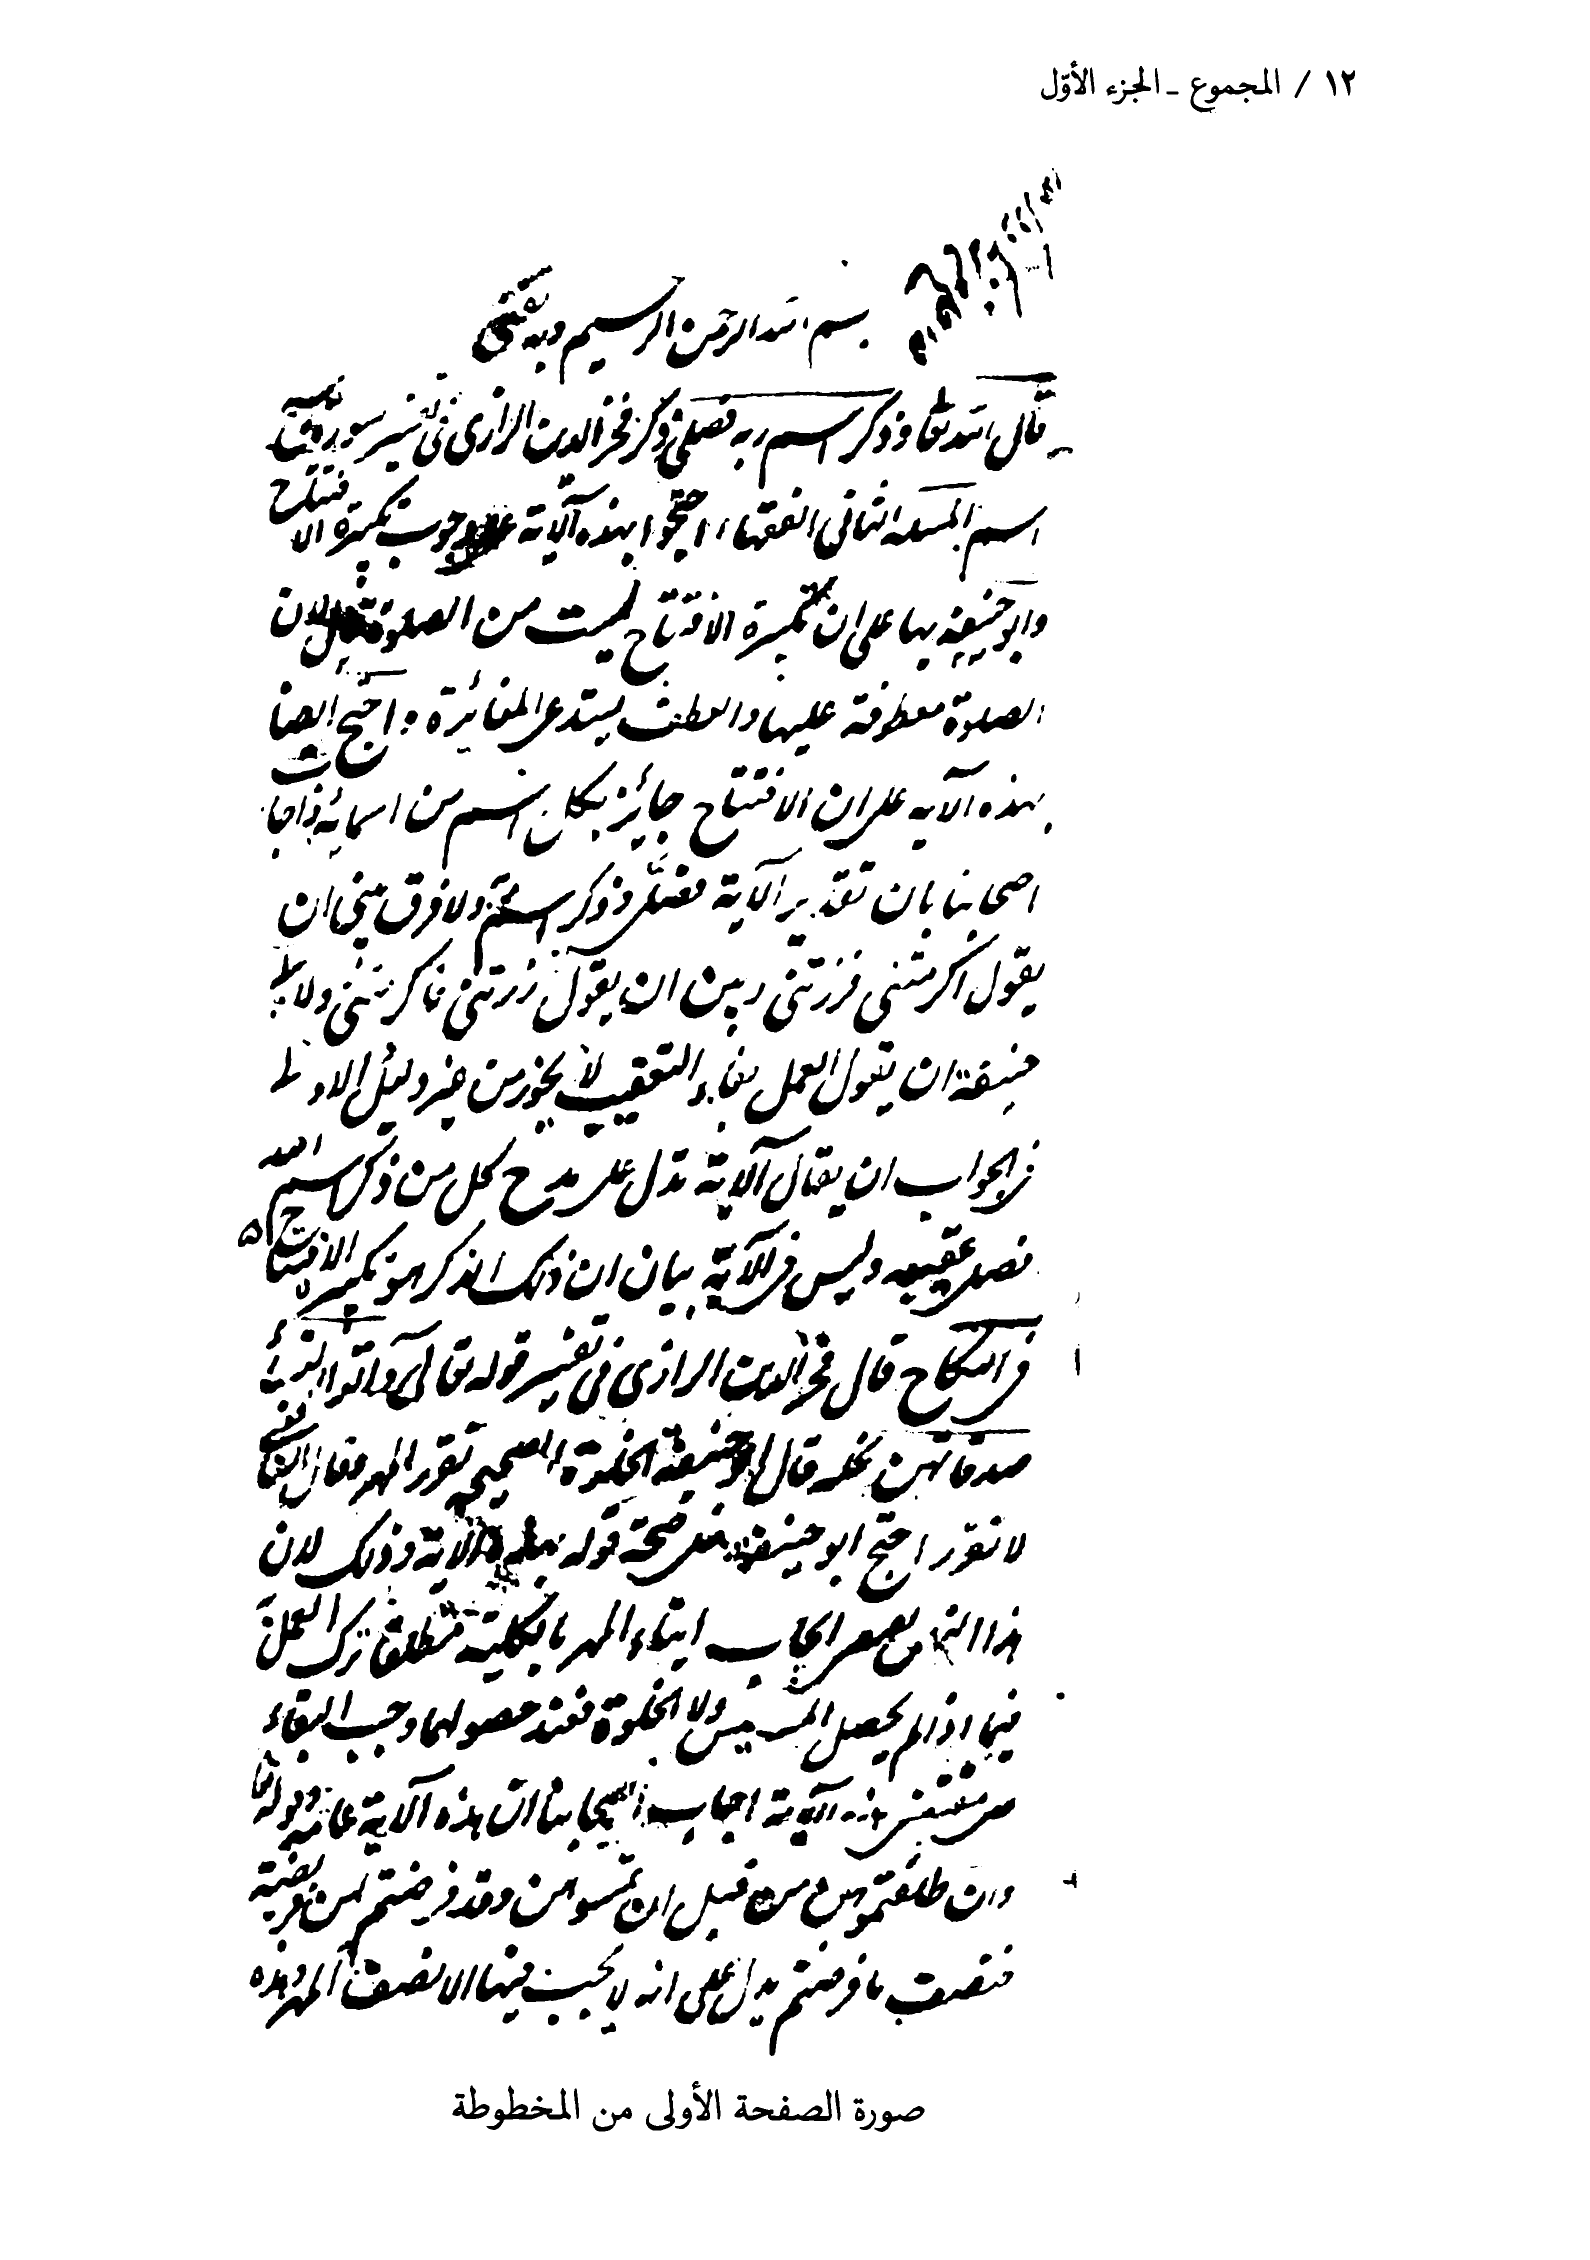 ١٢ / المجموع ـ الجزء الأوّل
بسم الله الرحمن الرحيم وبه ثقتي
قال الله تعالى وذكر اسم ربه فصلى ذكر فخر الدين الرازي في تفسير سورة سبح
اسم المسئلة الثاني الفقهاء احتجوا بهذه الآية على وجوب تكبيرة الافتتاح
وابو حنيفة بها على ان تكبيرة الافتتاح ليست من الصلوة قال لان
الصلوة معطوفة عليها والعطف يستدعي المغائرة واحتج ايضا
بهذه الآية على ان الافتتاح جايز بكل اسم من اسمائه فاجاب
اصحابنا بان تقدير الآية فصلى وذكر اسم ربه ولا فرق بين ان
يقول اكرمتني فزرتني وبين ان يقول زرتني فاكرمتني ولابي
حنيفة ان يقول العمل بفاء التعقيب لا يجوز من غير دليل الاولى
في الجواب ان يقال الآية تدل على مدح كل من ذكر اسم الله
فصلى عقيبه وليس في الآية بيان ان ذلك الذكر هو تكبيرة الافتتاح
في النكاح قال فخر الدين الرازي في تفسير قوله تعالى وآتوا النساء
صدقاتهن نحلة قال ابو حنيفة الخلوة الصحيحة تقرر المهر وقال الشافعي
لا تقرر احتج ابو حنيفة على صحة قوله بهذه الآية وذلك لان
هذا النص يقتضي ايجاب ايتاء المهر بالكلية مطلقا ترك العمل
فيما اذا لم يحصل المسيس ولا الخلوة فعند حصولهما وجب البقاء
على مقتضى الآية اجاب اصحابنا ان هذه الآية عامة وقوله تعالى
وان طلقتموهن من قبل ان تمسوهن وقد فرضتم لهن فريضة
فنصف ما فرضتم يدل على انه لا يجب فيها الا نصف المهر وهذه
صورة الصفحة الأولى من المخطوطة